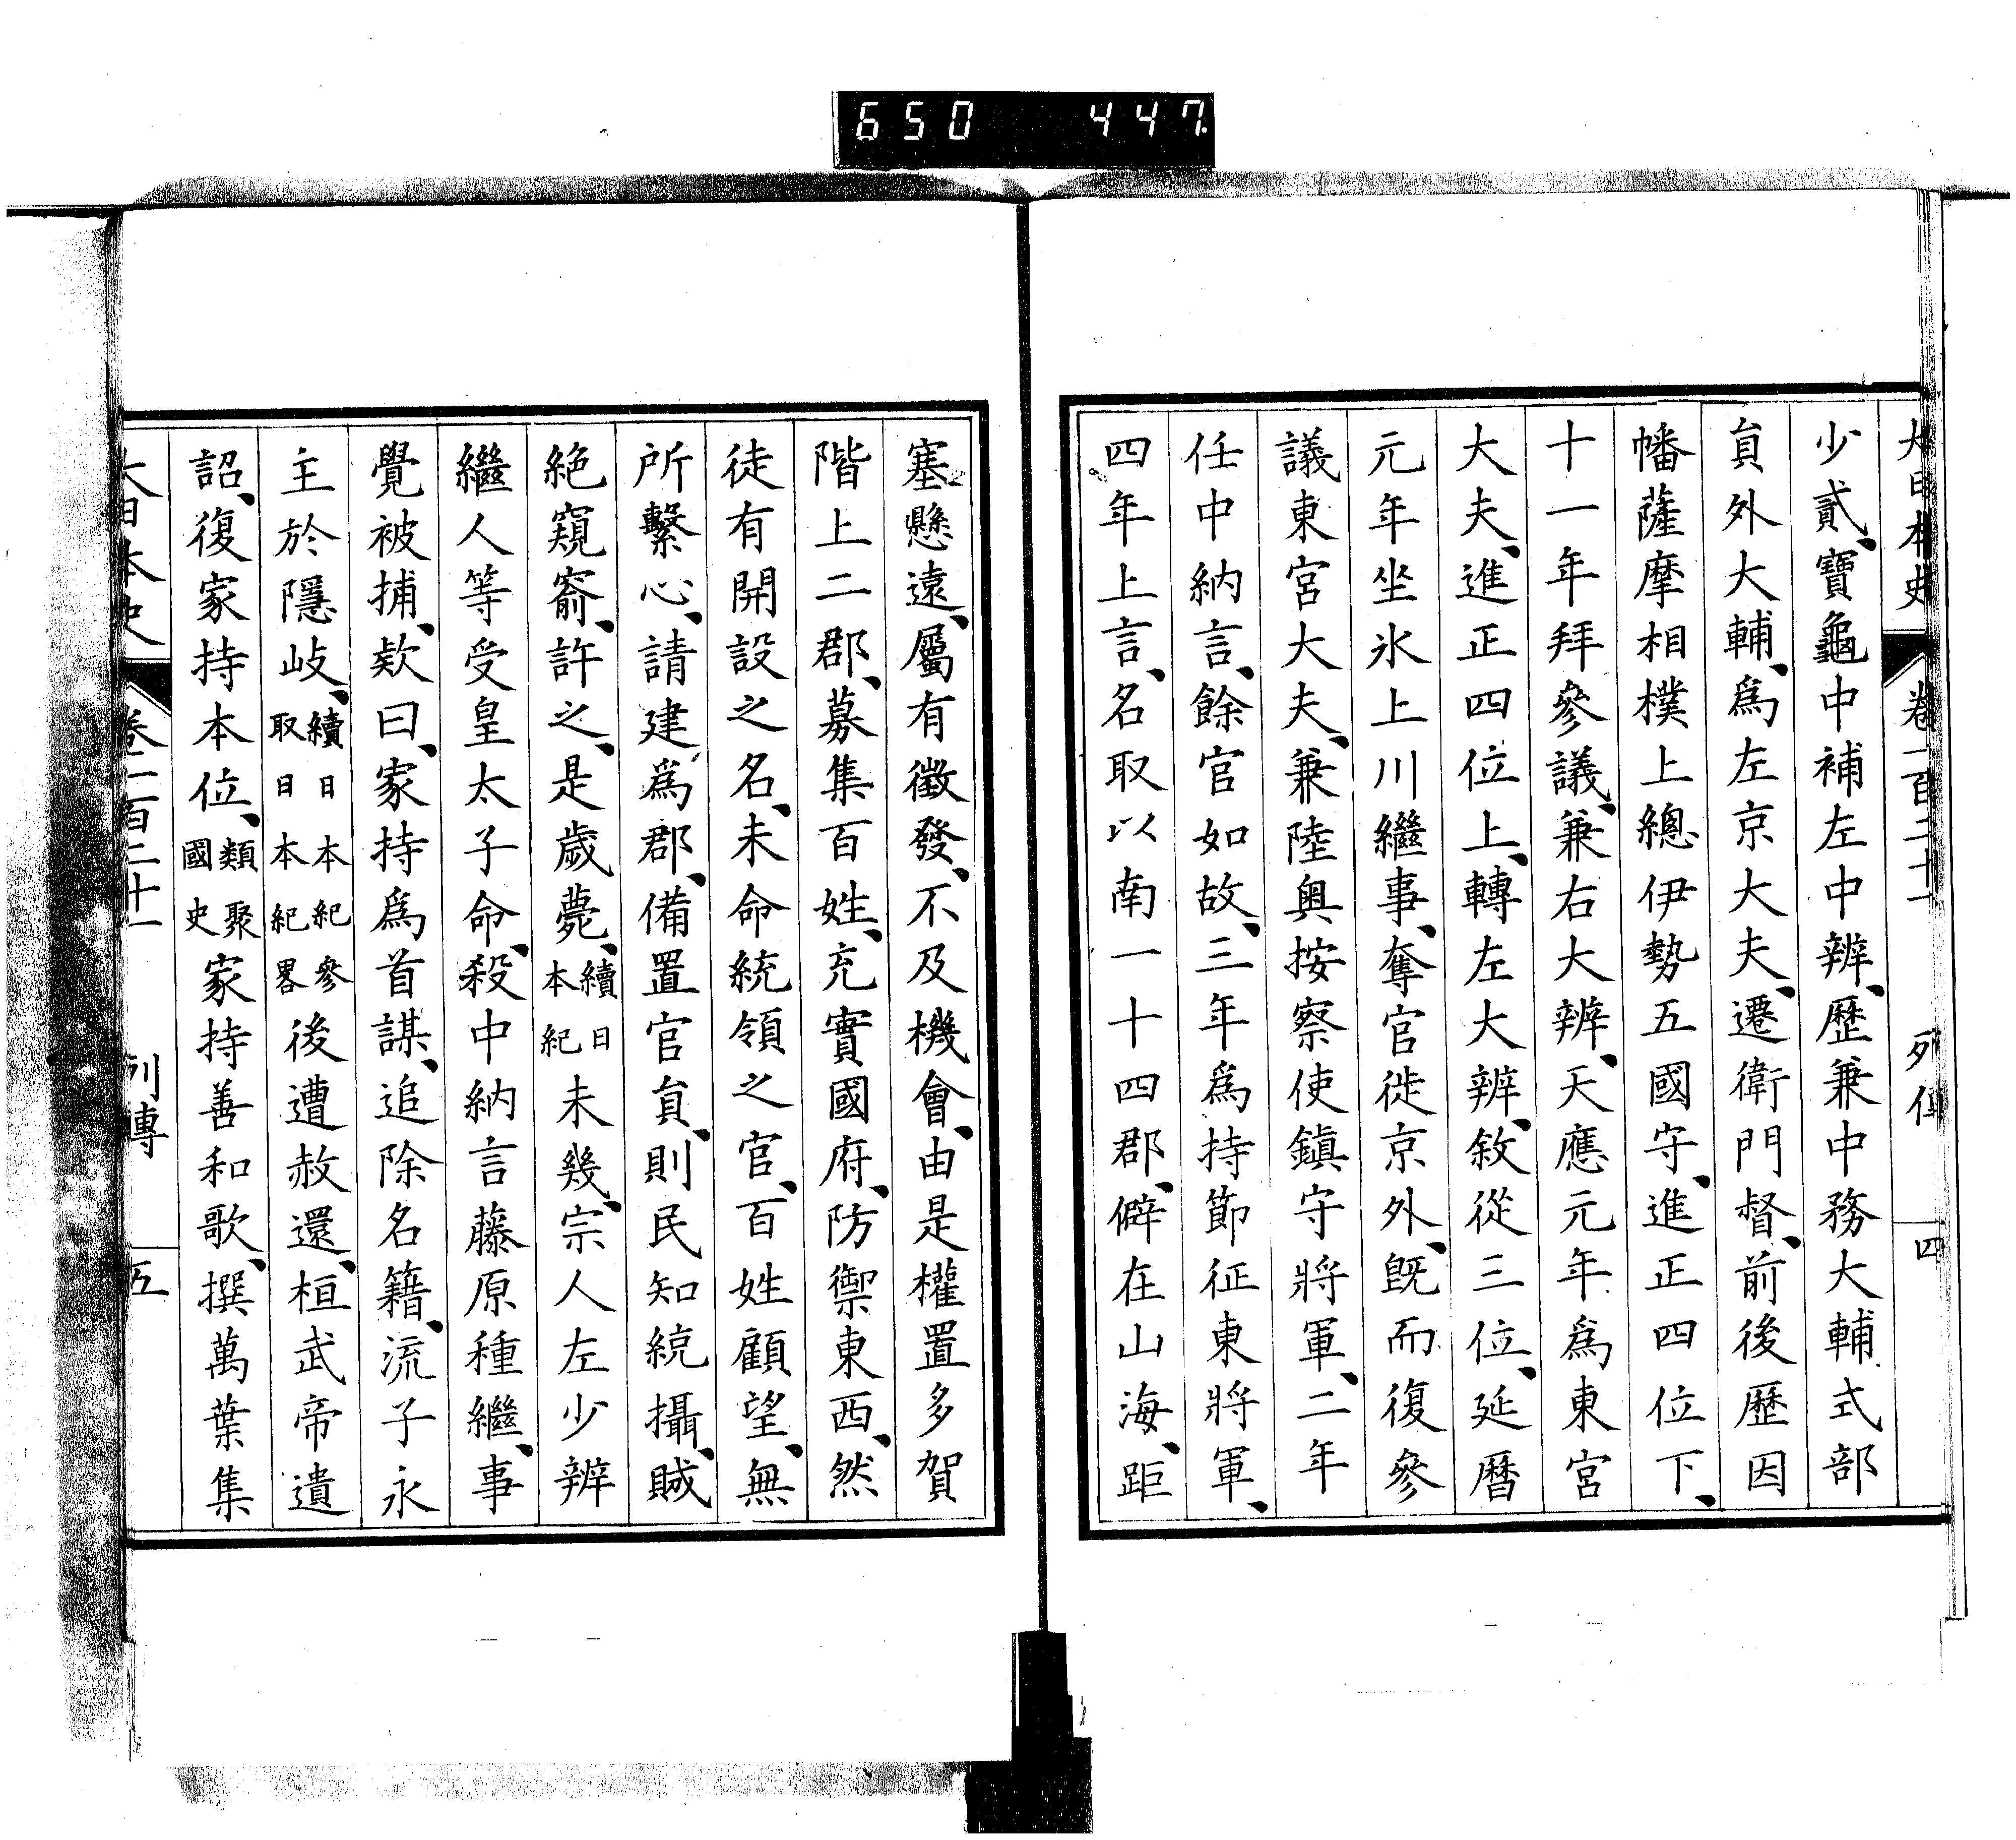 650 447
大日本史 卷一百二十一 列傳 四
少貳、寶龜中補左中辨、歷兼中務大輔式部
員外大輔、爲左京大夫、遷衛門督、前後歷因
幡薩摩相撲上總伊勢五國守、進正四位下、
十一年拜參議、兼右大辨、天應元年爲東宮
大夫、進正四位上、轉左大辨、敘從三位、延曆
元年坐氷上川繼事、奪官徙京外、既而復參
議東宮大夫、兼陸奥按察使鎭守將軍、二年
任中納言、餘官如故、三年爲持節征東將軍、
四年上言、名取以南一十四郡、僻在山海、距
塞懸遠、屬有徵發、不及機會、由是權置多賀
階上二郡、募集百姓、充實國府、防禦東西、然
徒有開設之名、未命統領之官、百姓顧望、無
所繫心、請建爲郡、備置官員、則民知統攝、賊
絶窺窬、許之、是歲薨、續日本紀未幾、宗人左少辨
繼人等受皇太子命、殺中納言藤原種繼、事
覺被捕、欵曰、家持爲首謀、追除名籍、流子永
主於隱岐、續日本紀參取日本紀畧後遭赦還、桓武帝遺
詔、復家持本位、類聚國史家持善和歌、撰萬葉集
大日本史 卷一百二十一 列傳 五